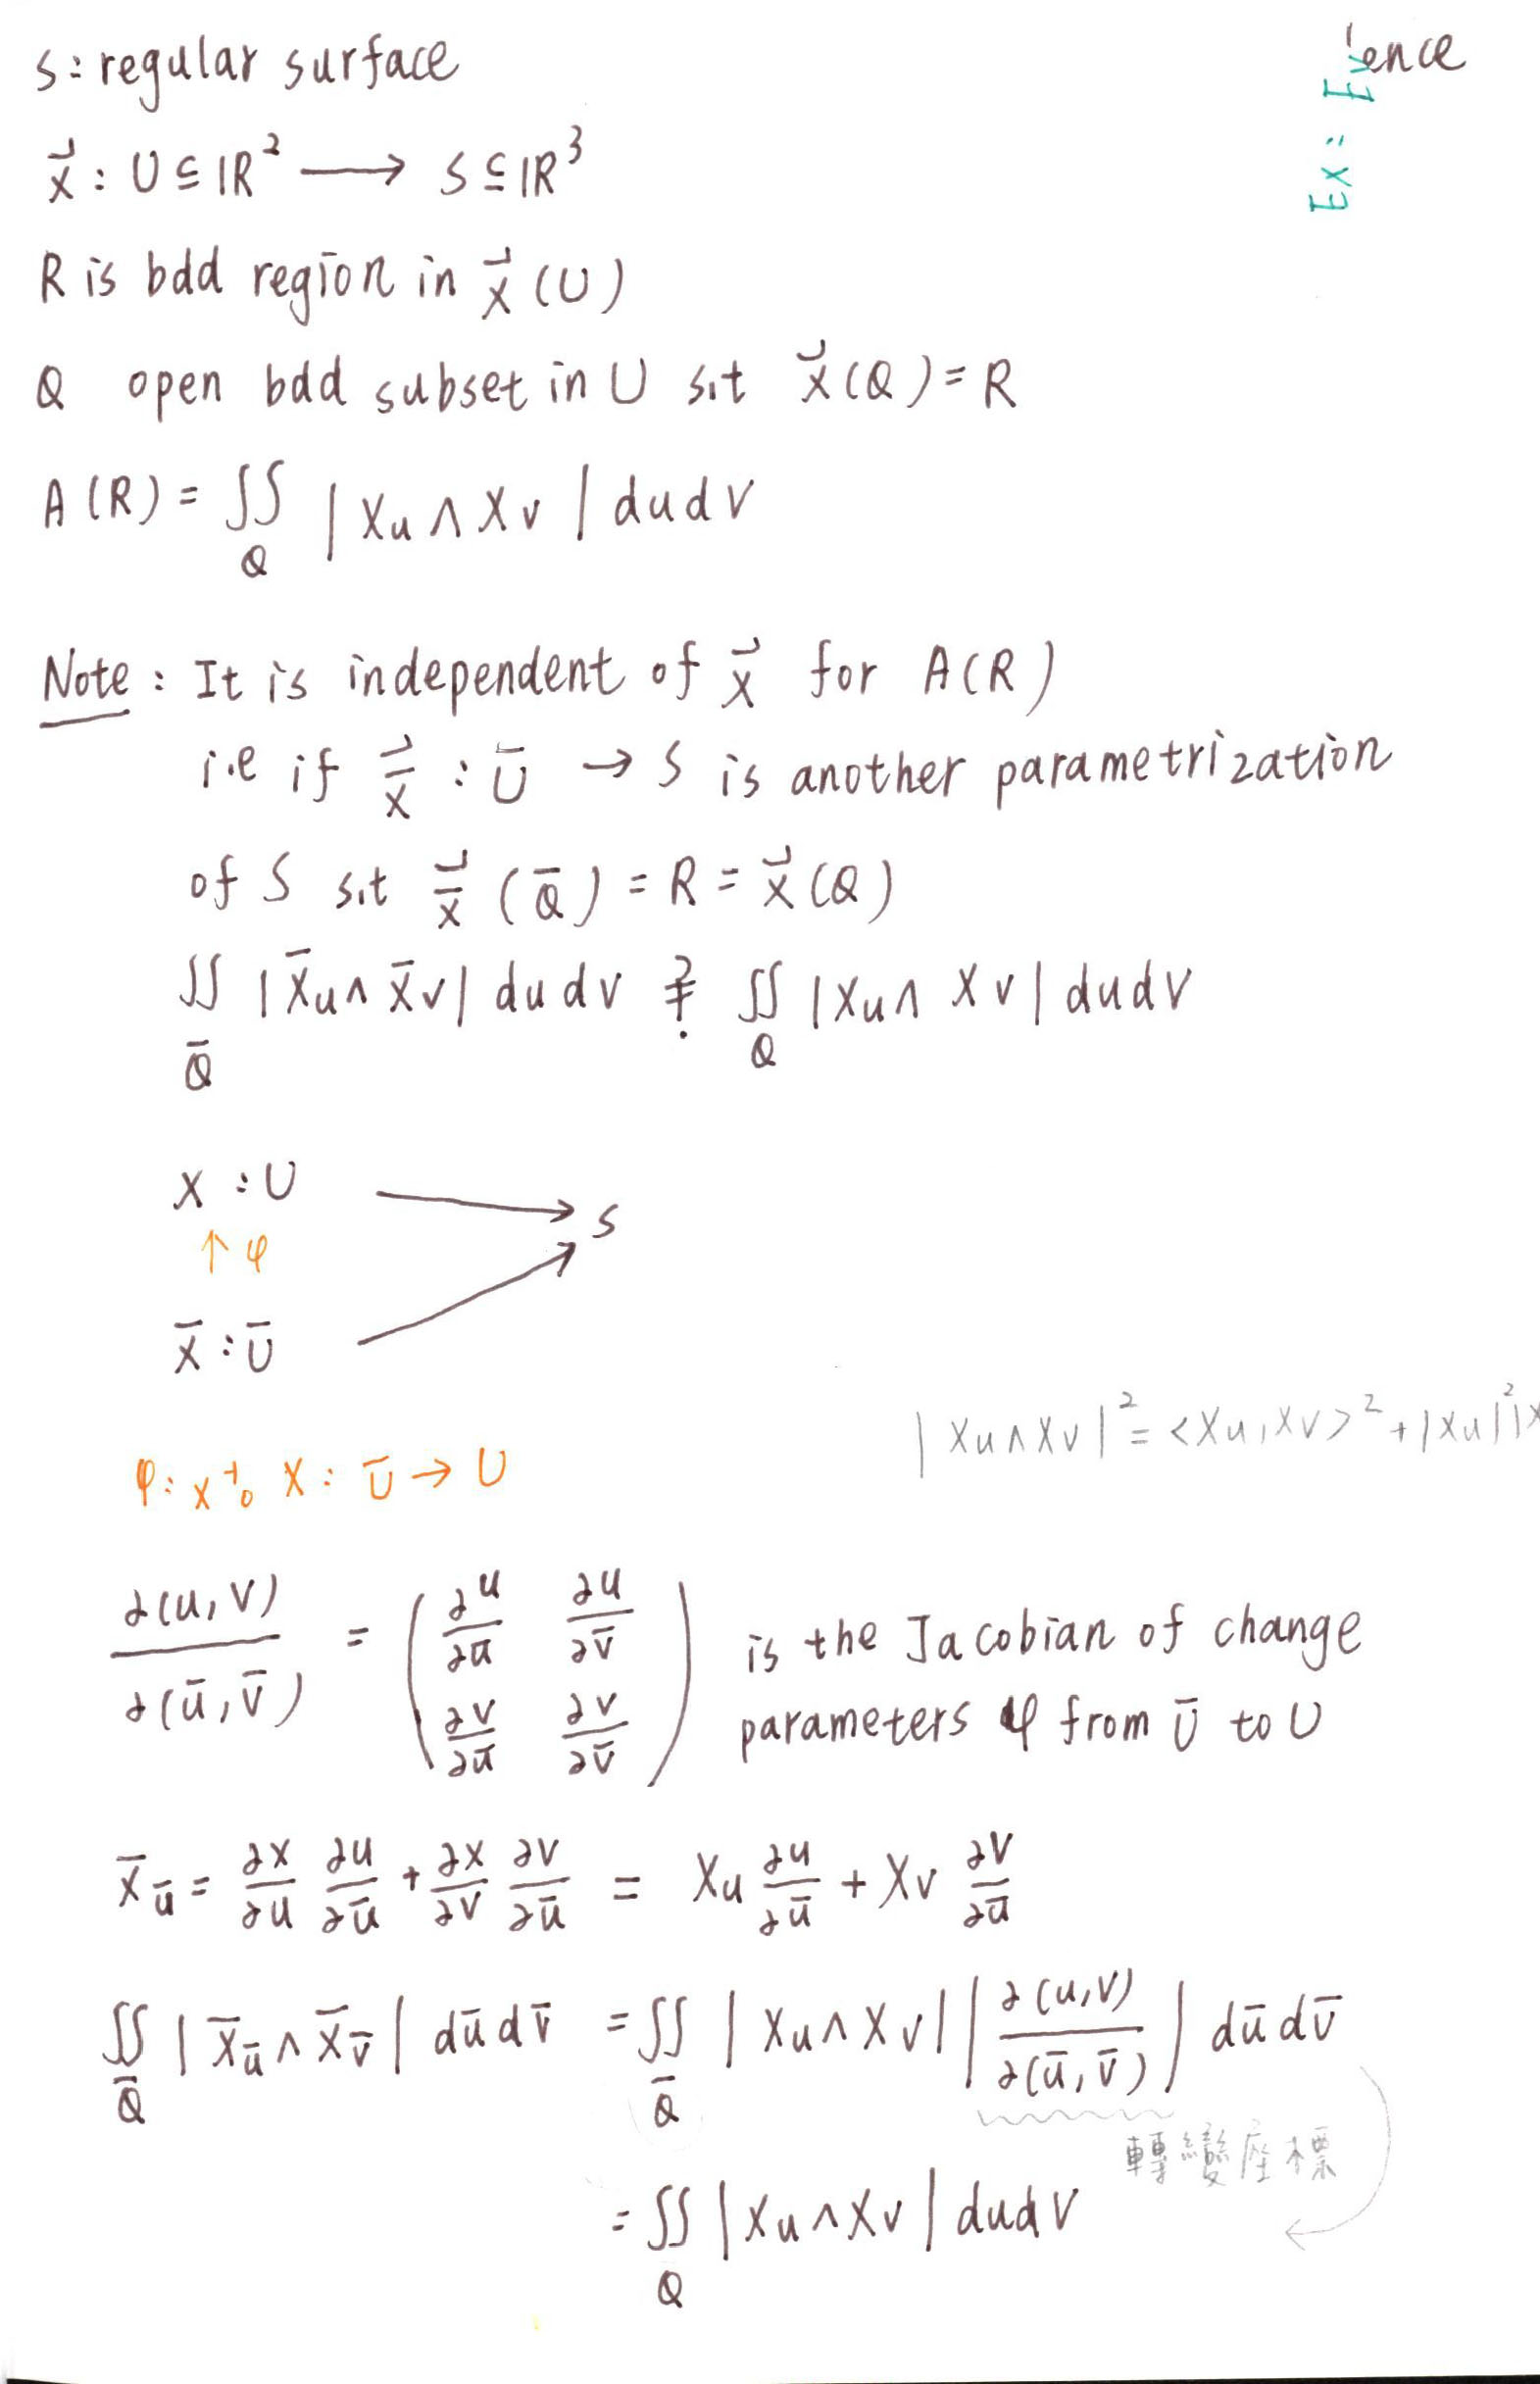 S : regular surface
x⃗ : U ⊆ ℝ² ⟶ S ⊆ ℝ³
R is bdd region in x⃗ (U)
Q open bdd subset in U s.t x⃗ (Q) = R
A (R) = ∬_Q | Xu ∧ Xv | du dv
Note : It is independent of x⃗ for A(R)
i.e if x̄⃗ : Ū → S is another parametrization
of S s.t x̄⃗ (Q̄) = R = x⃗ (Q)
∬_Q̄ | X̄u ∧ X̄v | du dv ≟ ∬_Q | Xu ∧ Xv | du dv
X : U ⟶ S
↑ φ
X̄ : Ū
| Xu ∧ Xv |² = < Xu, Xv >² + | Xu |² |
φ : X⁻¹ ∘ X : Ū → U
∂(u, v) / ∂(ū, v̄) = ( ∂u/∂ū ∂u/∂v̄ ; ∂v/∂ū ∂v/∂v̄ ) is the Jacobian of change
parameters φ from Ū to U
X̄ū = ∂X/∂u ∂u/∂ū + ∂X/∂v ∂v/∂ū = Xu ∂u/∂ū + Xv ∂v/∂ū
∬_Q̄ | X̄ū ∧ X̄v̄ | dū dv̄ = ∬_Q̄ | Xu ∧ Xv | | ∂(u, v) / ∂(ū, v̄) | dū dv̄
轉變座標
= ∬_Q | Xu ∧ Xv | du dv
Ex :